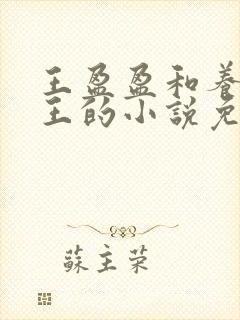 王盈盈和养
王的小說免
蘇主荣